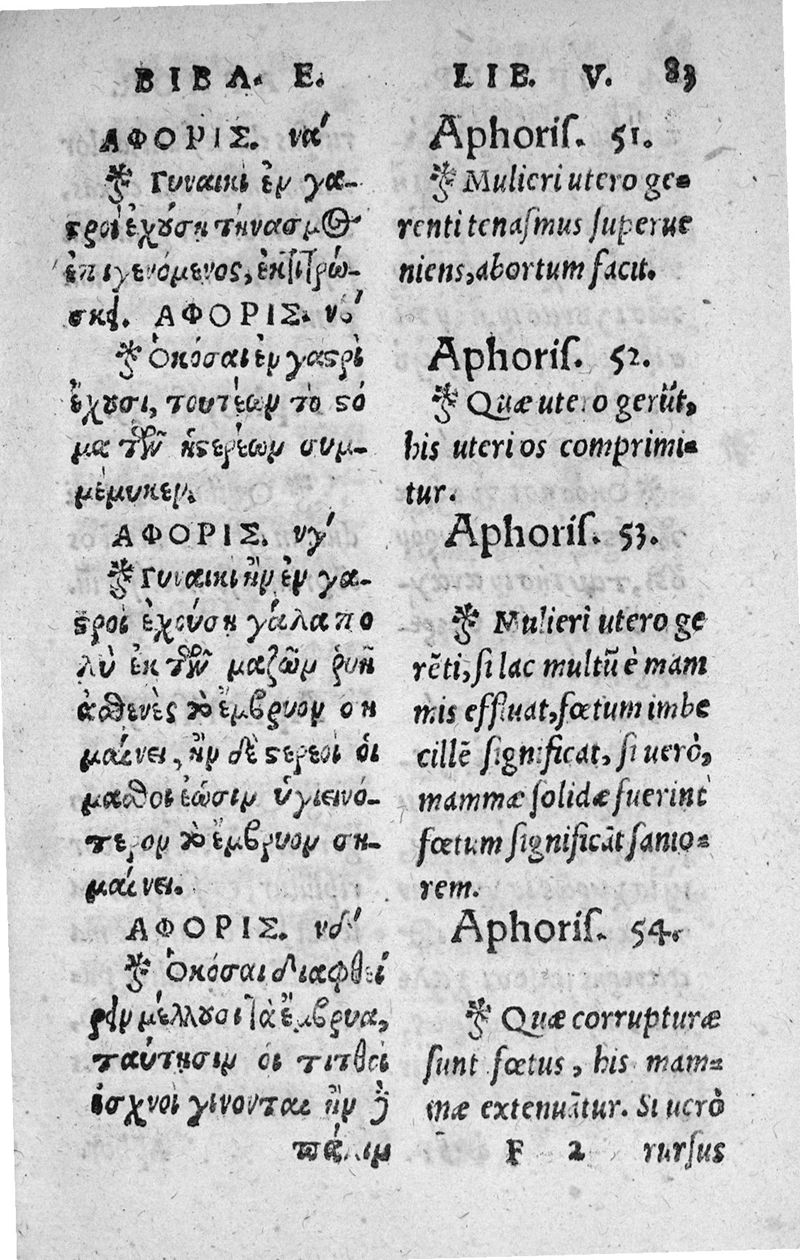 ΒΙΒΛ. Ε.
ΑΦΟΡΙΣ. να´
Γυναικὶ ἐν γα-
ϛρὶ ἐχούσῃ τηνασμὸς
ἐπιγενόμενος, ἐκτιτρώ-
σκει. ΑΦΟΡΙΣ. νβ´
Ὁκόσαι ἐν γαϛρὶ
ἔχουσι, τουτέων τὸ ϛό
μα τῶν ὑϛερέων συμ-
μέμυκεν.
ΑΦΟΡΙΣ. νγ´
Γυναικὶ ἢν ἐν γα-
ϛρὶ ἐχούσῃ γάλα πο
λὺ ἐκ τῶν μαζῶν ῥυῇ
ἀσθενὲς τὸ ἔμβρυον ση
μαίνει, ἢν δὲ ϛερεοὶ οἱ
μασθοὶ ἐώσιν ὑγιεινό-
τερον τὸ ἔμβρυον ση-
μαίνει.
ΑΦΟΡΙΣ. νδ´
Ὁκόσαι διαφθεί
ρειν μέλλουσι τὰ ἔμβρυα,
ταύτησιν οἱ τιτθοὶ
ἰσχνοὶ γίνονται ἢν δὲ
πάλιν
LIB. V. 83
Aphoris. 51.
Mulieri utero ge-
renti tenasmus superue
niens, abortum facit.
Aphoris. 52.
Quæ utero gerũt,
his uteri os comprimi-
tur.
Aphoris. 53.
Mulieri utero ge
rẽti, si lac multũ è mam
mis effluat, fœtum imbe
cillẽ significat, si uerò,
mammæ solidæ fuerint
fœtum significãt sanio-
rem.
Aphoris. 54.
Quæ corrupturæ
sunt fœtus, his mam-
mæ extenuãtur. Si uerò
F 2 rursus